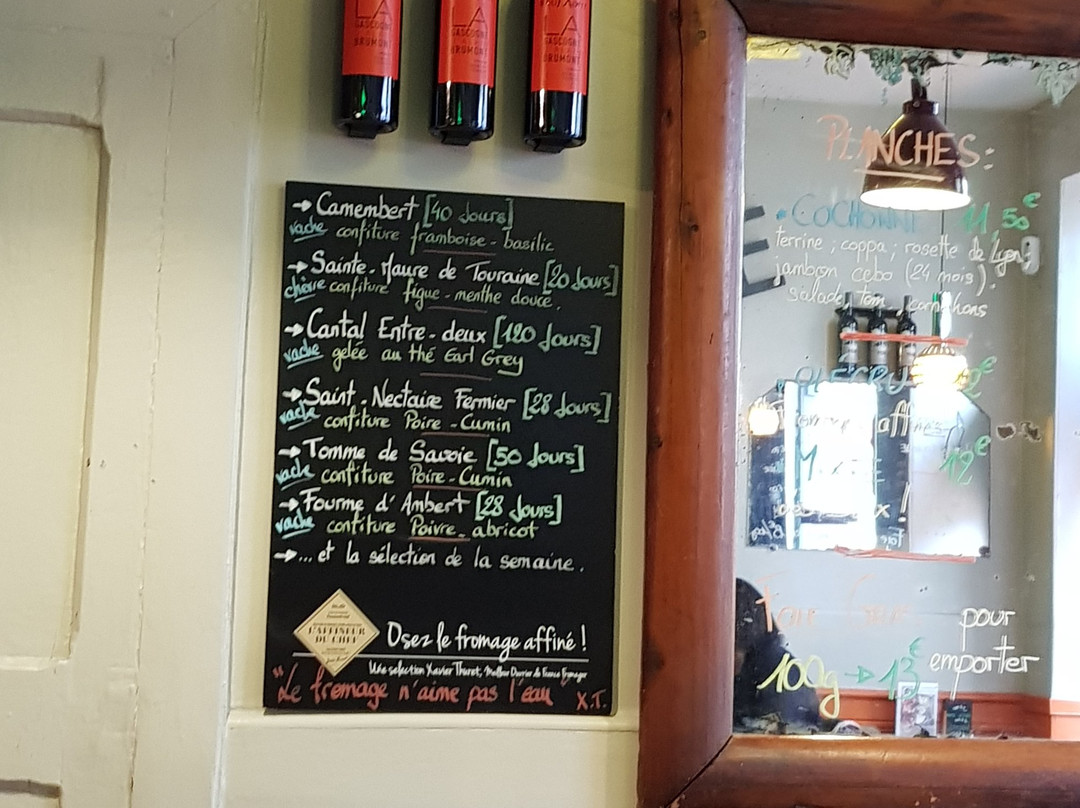 LA
GASCOGNE
BRUMONT
LA
GASCOGNE
BRUMONT
GASCOGNE
BRUMONT
→ Camembert [40 Jours]
vache confiture framboise - basilic
→ Sainte-Maure de Touraine [20 Jours]
chèvre confiture figue - menthe douce.
→ Cantal Entre-deux [120 Jours]
vache gelée au thé Earl Grey
→ Saint-Nectaire Fermier [28 Jours]
vache confiture Poire - Cumin
→ Tomme de Savoie [50 Jours]
vache confiture Poire - Cumin
→ Fourme d'Ambert [28 Jours]
vache confiture Poivre - abricot
→ ... et la sélection de la semaine.
L'AFFINEUR
DU CHEF
Osez le fromage affiné !
Une selection Xavier Thuret, Meilleur Ouvrier de France Fromager
"Le fromage n'aime pas l'eau" X.T.
PLANCHES:
COCHONNE 11,50€
terrine ; coppa ; rosette de Lyon ;
jambon cebo (24 mois).
salade, tom. cornichons
12€
pour
emporter
100g → 13€